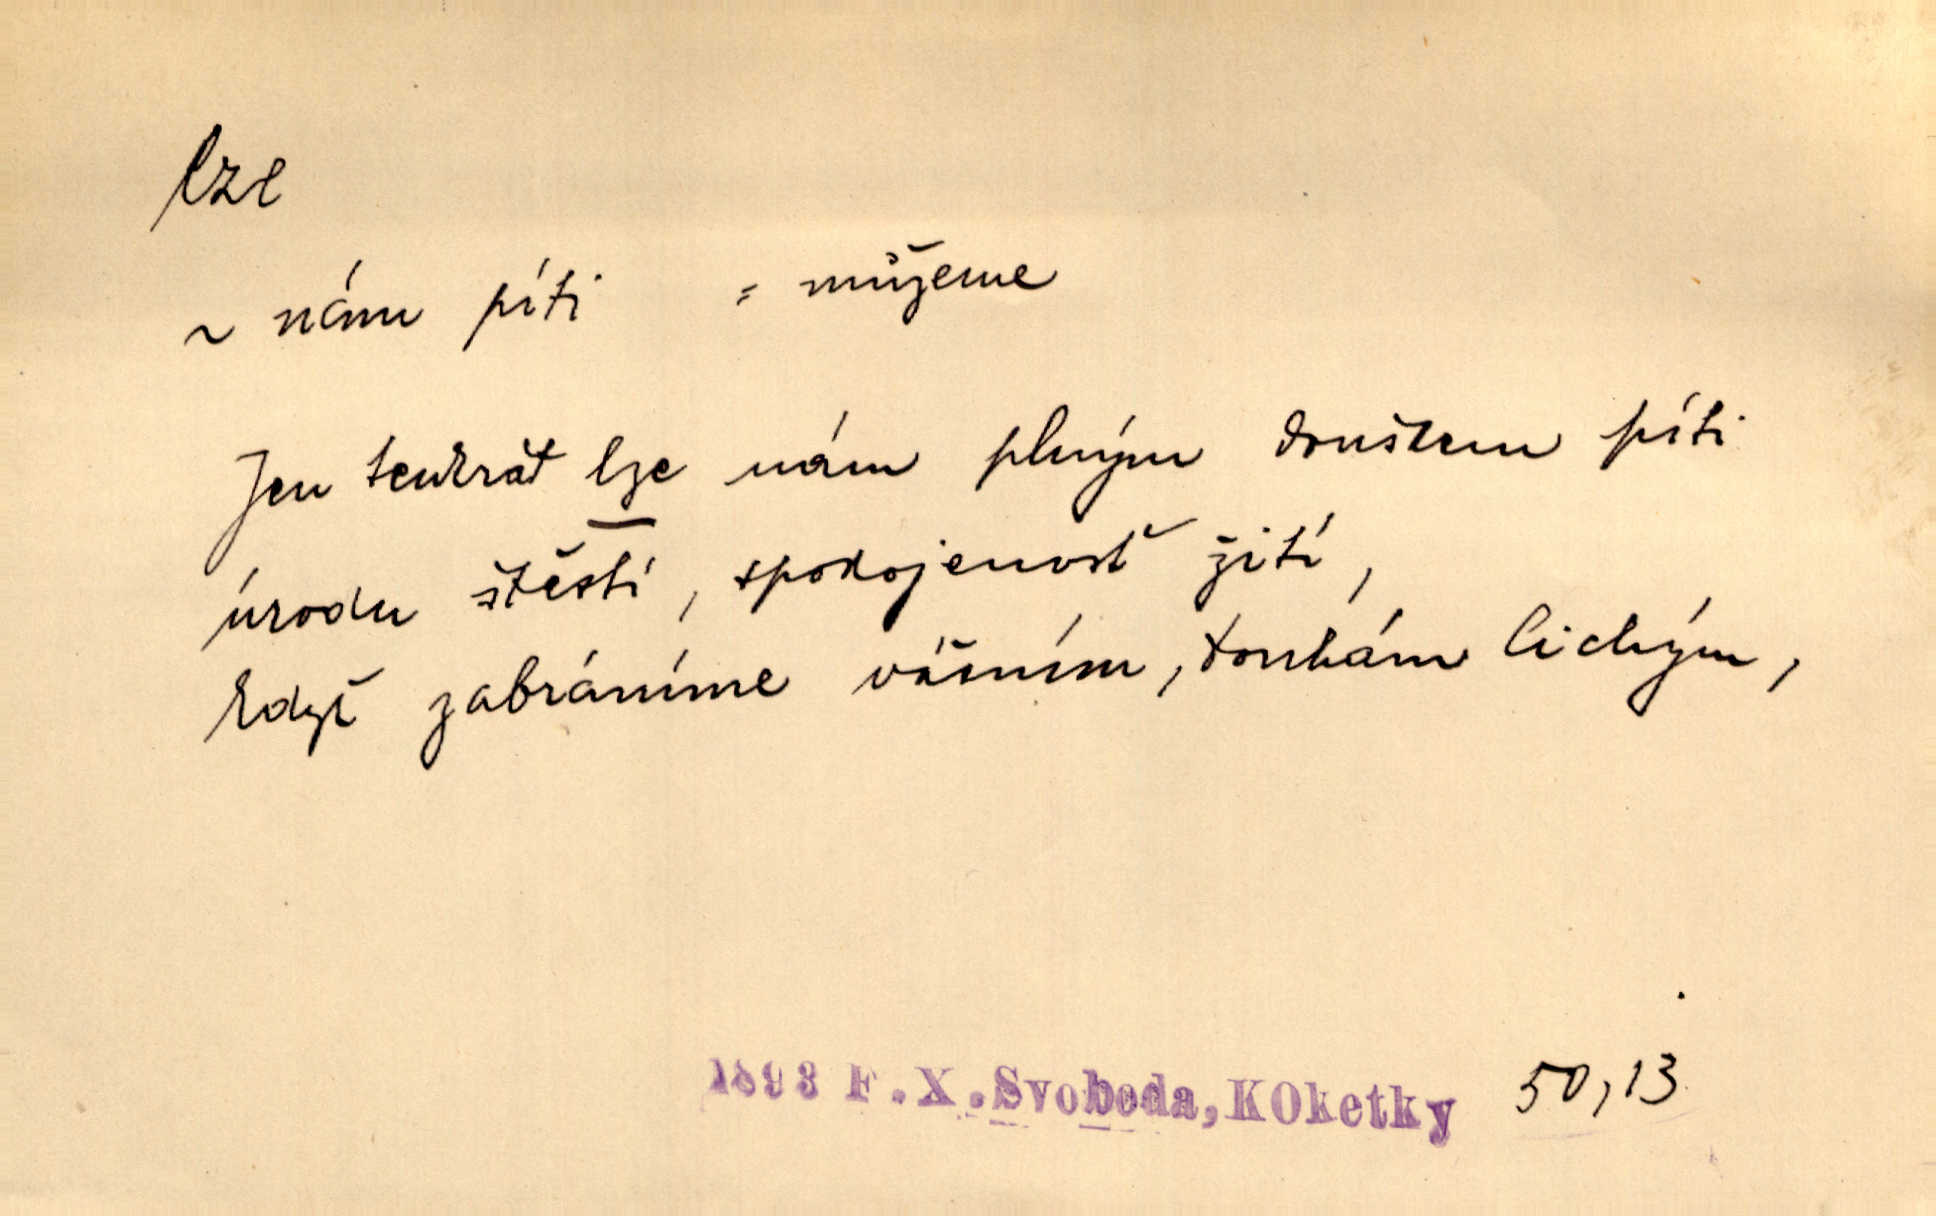 lze
~ nám píti = můžeme
Jen tenkrát lze nám plným douškem píti
úrodu štěstí, spokojenosť žití,
když zabráníme vášním, touhám lichým,
1893 F.X.Svoboda, KOketky 50,13